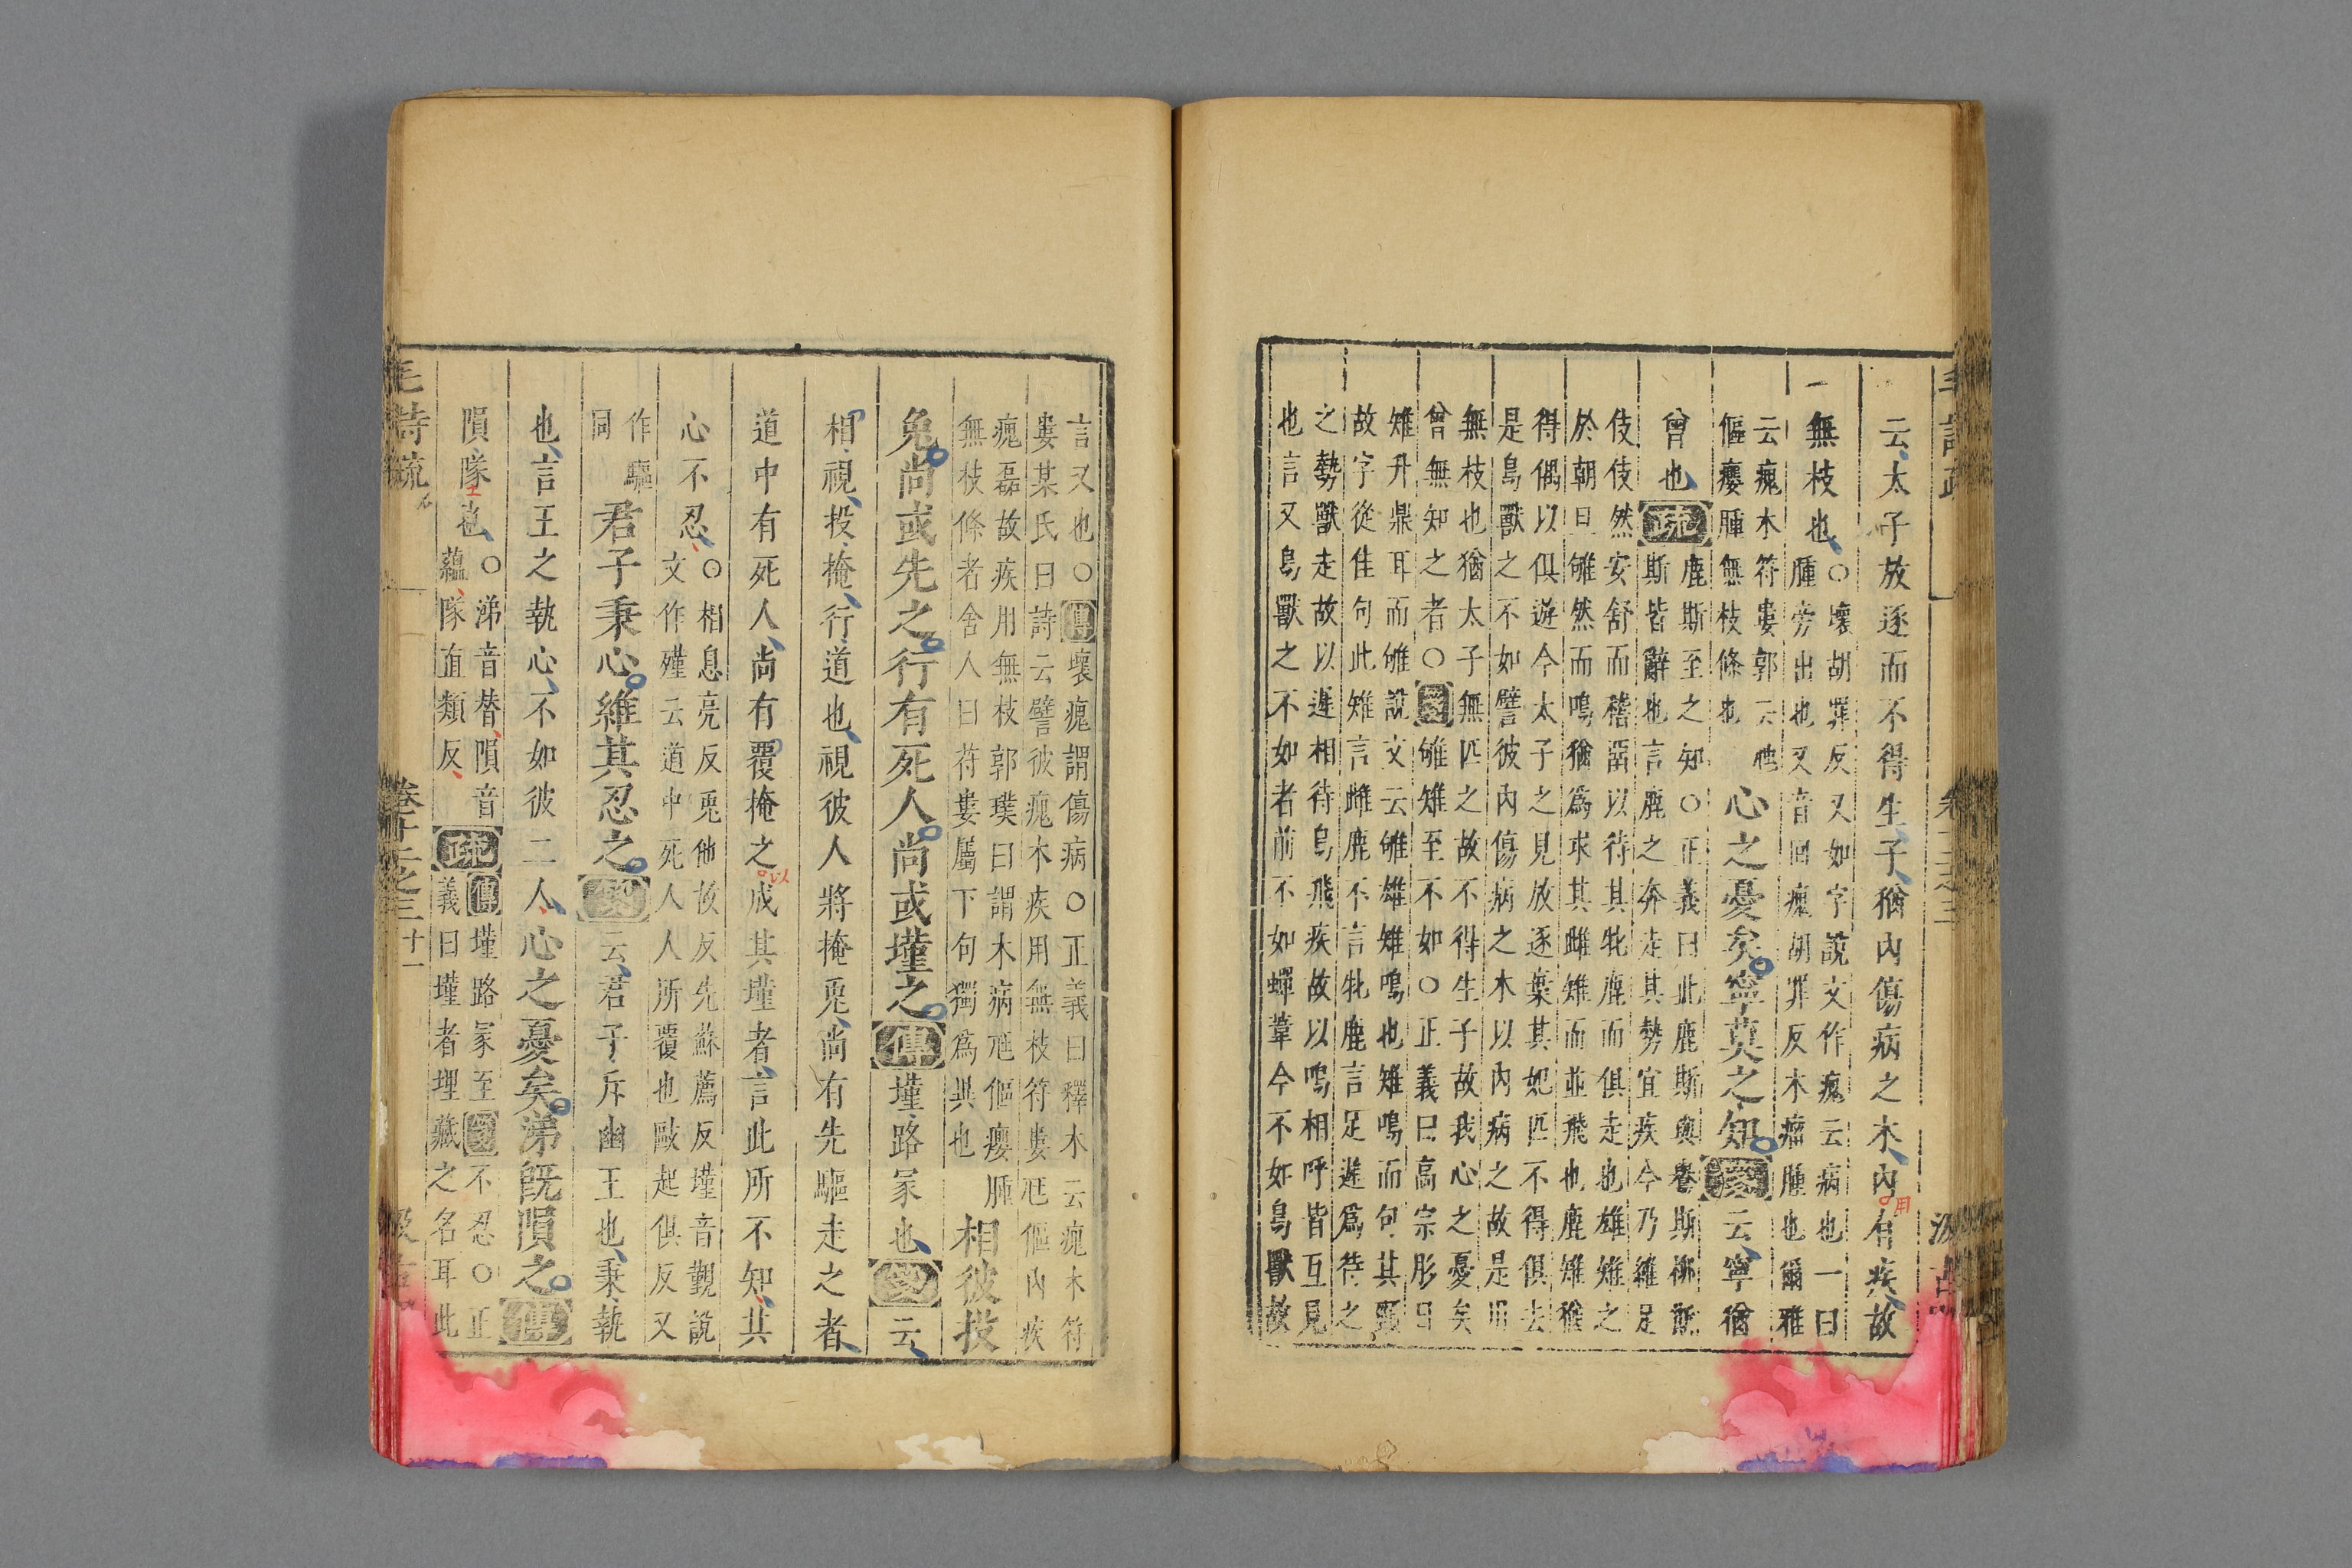 云太子放逐而不得生子猶內傷病之木內有疾故
用
一無枝也〇壞胡罪反又如字說文作瘣云病也一曰
腫旁出也又音回瘣胡罪反木瘤腫也爾雅
云瘣木符婁郭云虺
傴癭腫無枝條也
心之憂矣寧莫之知箋云寧猶
曾也疏鹿斯至之知〇正義曰此鹿斯與鸒斯柳斯
斯皆辭也言鹿之奔走其勢宜疾今乃維足
伎伎然安舒而稽留以待其牝鹿而俱走也雄雉之
於朝旦雊然而鳴猶爲求其雌雉而並飛也鹿雉猶
得偶以俱遊今太子之見放逐棄其妃匹不得俱去
是鳥獸之不如譬彼內傷病之木以內病之故是用
無枝也猶太子無匹之故不得生子故我心之憂矣
曾無知之者〇箋雊雉至不如〇正義曰高宗肜日
雉升鼎耳而雊說文云雊雄雉鳴也雉鳴而句其頸
故字從隹句此雉言雌鹿不言牝鹿言足遲爲待之
之勢獸走故以遲相待鳥飛疾故以鳴相呼皆互見
也言又鳥獸之不如者前不如蟬葦今不如鳥獸故
言又也〇傳壞瘣謂傷病〇正義曰釋木云瘣木符
婁某氏曰詩云譬彼瘣木疾用無枝符婁尫傴內疾
瘣磊故疾用無枝郭璞曰謂木病尫傴癭腫
無枝條者舍人曰苻婁屬下句獨爲異也
相彼投
兔尚或先之行有死人尚或墐之傳墐路冢也箋云
相視投掩行道也視彼人將掩兔尚有先驅走之者
道中有死人尚有覆掩之成其墐者言此所不知其
以
心不忍〇相息亮反兎他故反先蘇薦反墐音覲說
文作殣云道中死人人所覆也敺起俱反又
作驅
同
君子秉心維其忍之箋云君子斥幽王也秉執
也言王之執心不如彼二人心之憂矣涕旣隕之傳
隕隊也〇涕音替隕音
蘊隊直類反
疏傳墐路冢至箋不忍〇正
義曰墐者埋藏之名耳此
毛詩疏
卷十二之三
十一